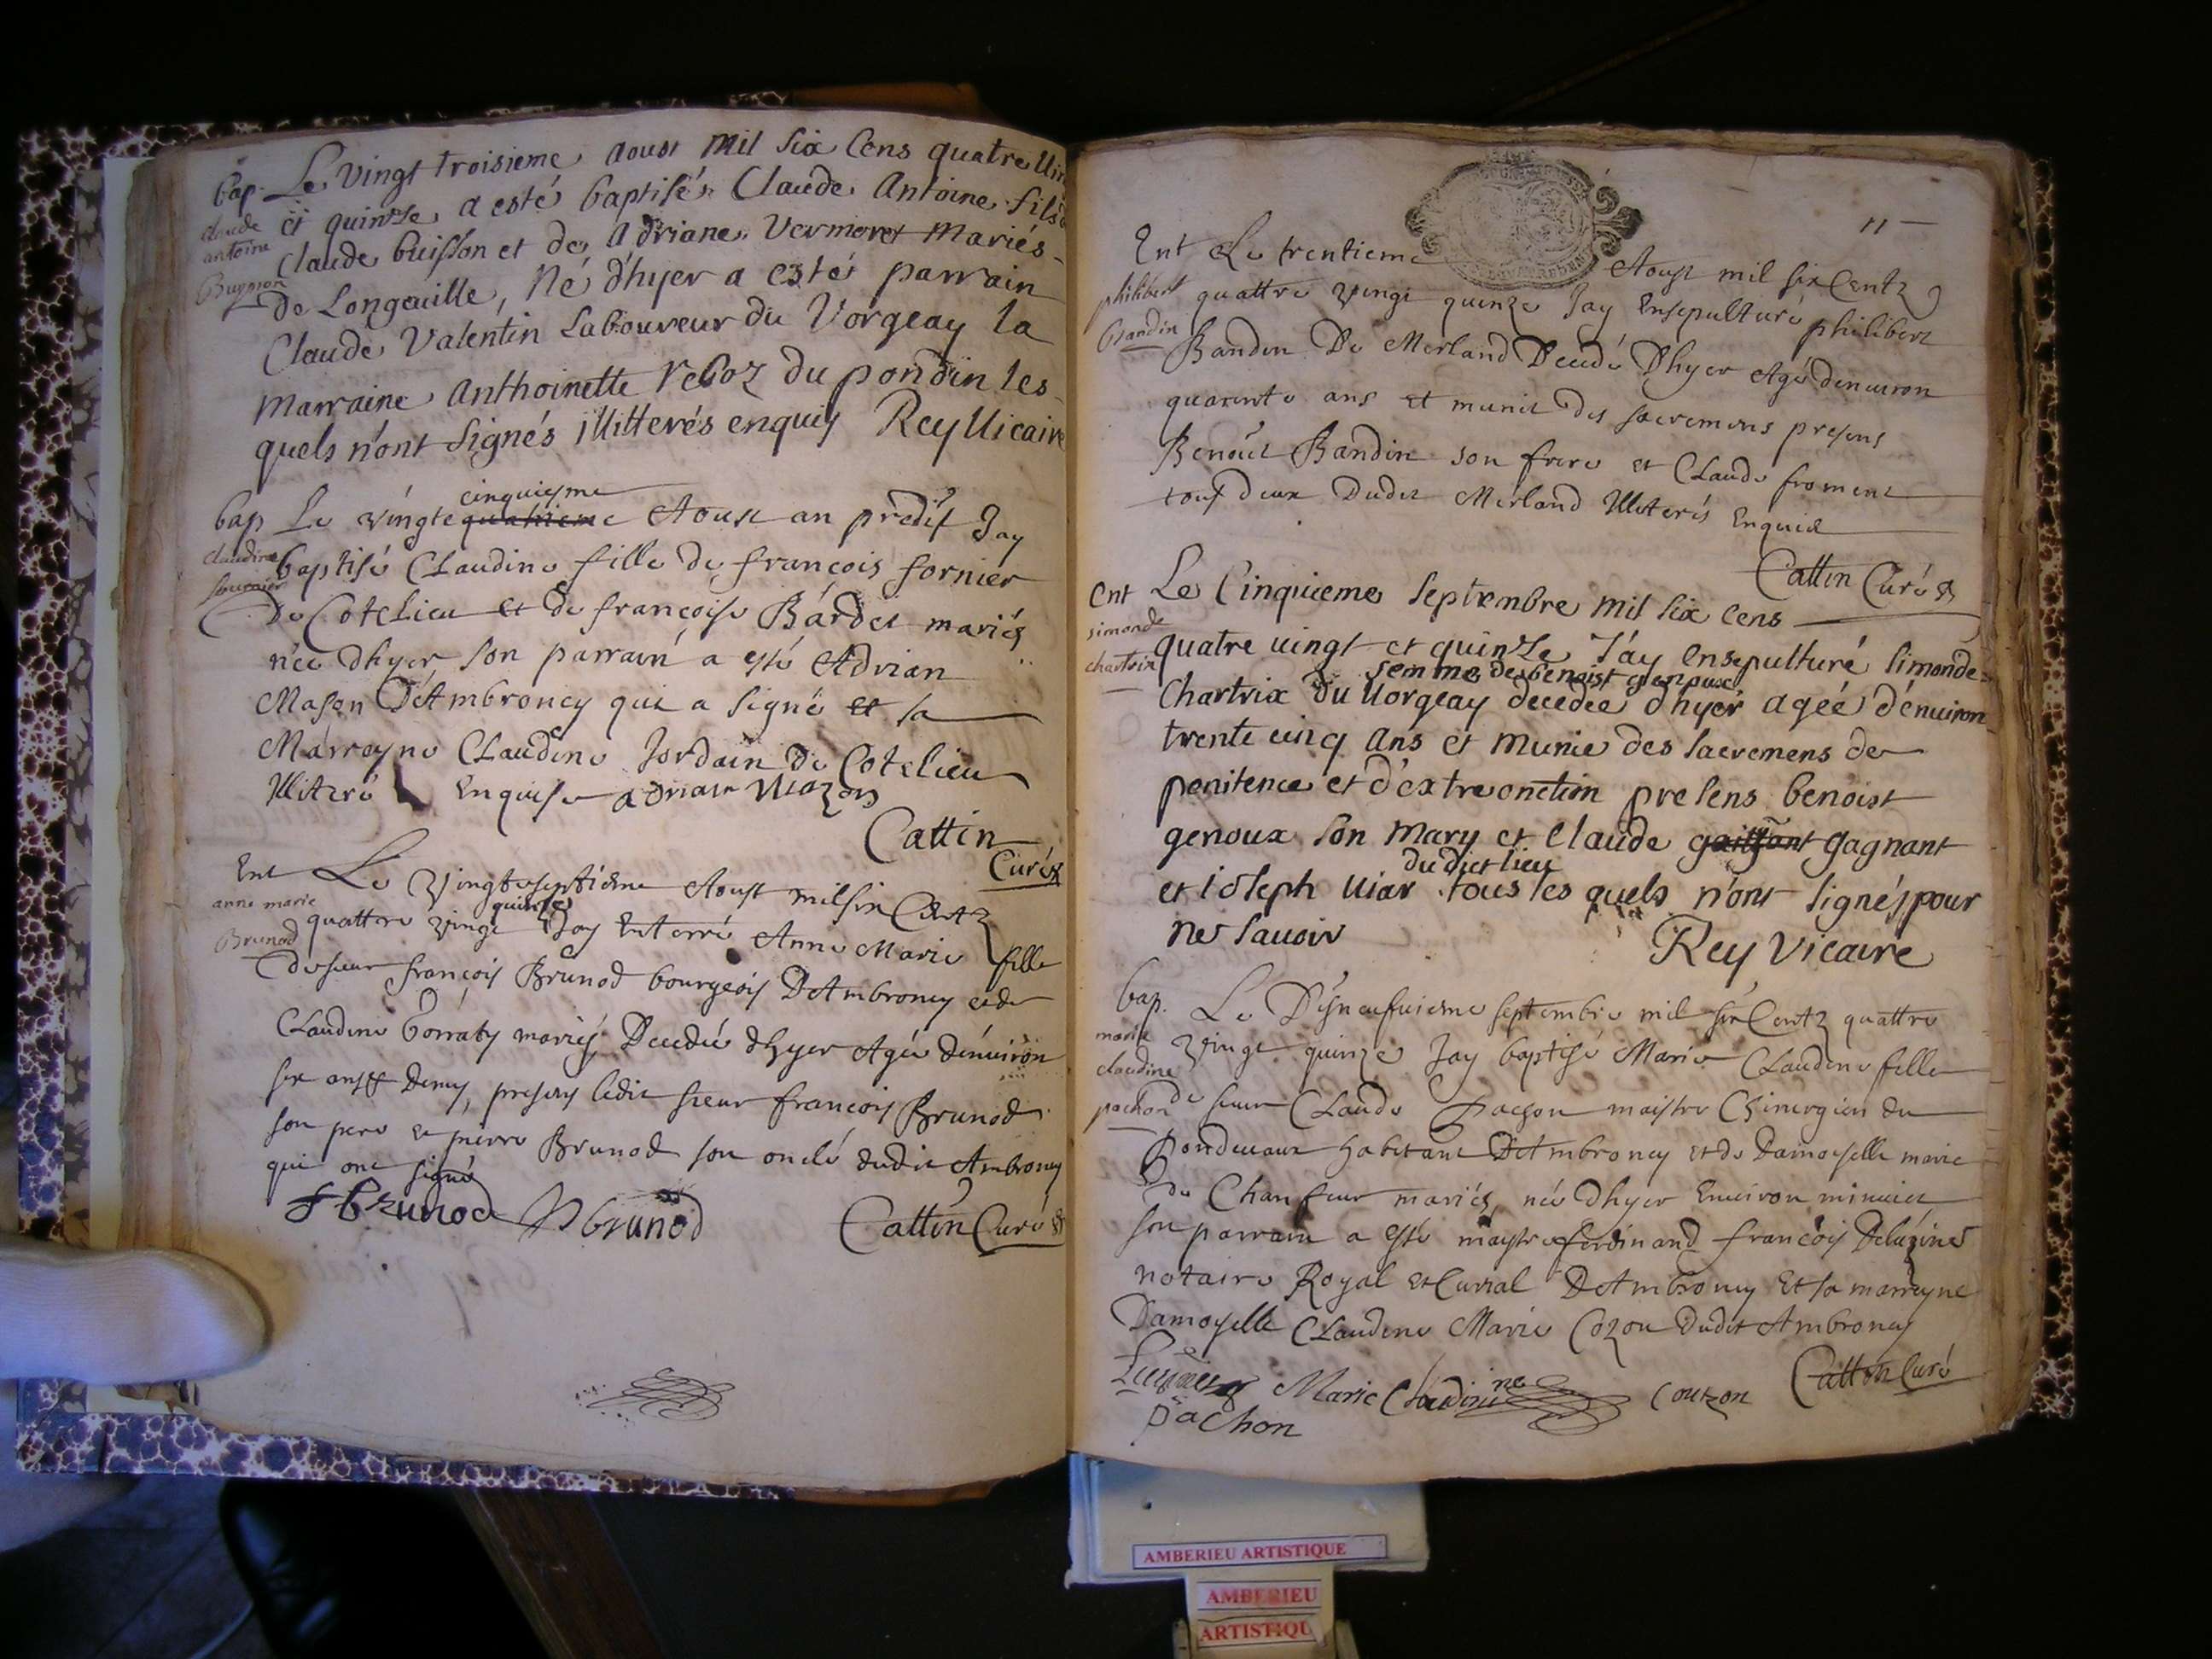 bap. Le vingt troisieme aoust mil six cens quatre vin
claude
antoine
Buysson
et quinze a esté baptisé Claude Antoine fils de
Claude buisson et de Adriane Vermoret mariés
de Longeuille, né d'hyer a esté parrain
Claude Valentin Laboureur du Vorgeay la
marraine Anthoinette reboz du pondin les
quels n'ont signés illitterés enquis Rey Vicaire
cinquiesme
bap Le vingte quatrieme Aoust an predit Jay
claudine
fournier
baptisé Claudine fille de francois fornier
de Cotelieu et de francoise Bardet mariés
née dhyer son parrain a esté Adrian
Mason d'Ambroney qui a signé et sa
Marrayne Claudine Jordain de Cotelieu
illiteré Enquise adriain Mazon
Cattin
Curé
Ent Le vingt septiesme Aoust mil six Centz
anne marie
Brunod
quattre vingt quinze Jay Enterré Anne Marie fille
de sieur françois Brunod bourgeois DAmbroney et de
Claudine Torraty mariés Decedée dhyer Agée d'enuiron
six ans et Demy, presens ledit sieur francois Brunod
son pere et pierre Brunod son oncle dudit Ambroney
qui ont signé
f brunod P brunod Cattin Curé
11
Ent Le trentieme Aoust mil six Centz
philibert
bandin
quattre vingt quinze Jay Ensepulturé philibert
Bandin De Merland Decedé Dhyer Agé denuiron
quarente ans et munit des sacremens presens
Benoit Bandin son frere et Claude froment
tous deux Dudit Merland Illiterés Enquis
Cattin Curé
Ent Le Cinquieme Septembre mil six cens
simonde
chartrix
quatre uingt et quinze J'ay ensepulturé simonde
femme de benoist genoux
Chartrix du Vorgeay decedée d'hyer agée d'enuiron
trente cinq ans et munie des sacremens de
penitence et d'extreonction presens benoist
genoux son mary et Claude gagnant
du dict lieu
et ioseph Viar tous les quels n'ont signés pour
ne sauoir
Rey Vicaire
bap. Le Disneufuiesme septembre mil six Centz quattre
marie
claudine
pachon
vingt quinze Jay baptisé Marie Claudine fille
de sieur Claude Pachon maistre Chirurgien du
Pondeuaux habitant DAmbroney et de Damoiselle marie
de Chanfeur mariés, née dhyer Enuiron minuict
son parrain a esté maistre ferdinand françois Deluzines
notaire Royal et Curial DAmbroney Et sa marreyne
Damoyselle Claudine Marie Cozon Dudit Ambroney
Marie Claudine Couzon Cattin Curé
pachon
AMBERIEU ARTISTIQUE
AMBERIEU
ARTISTIQU